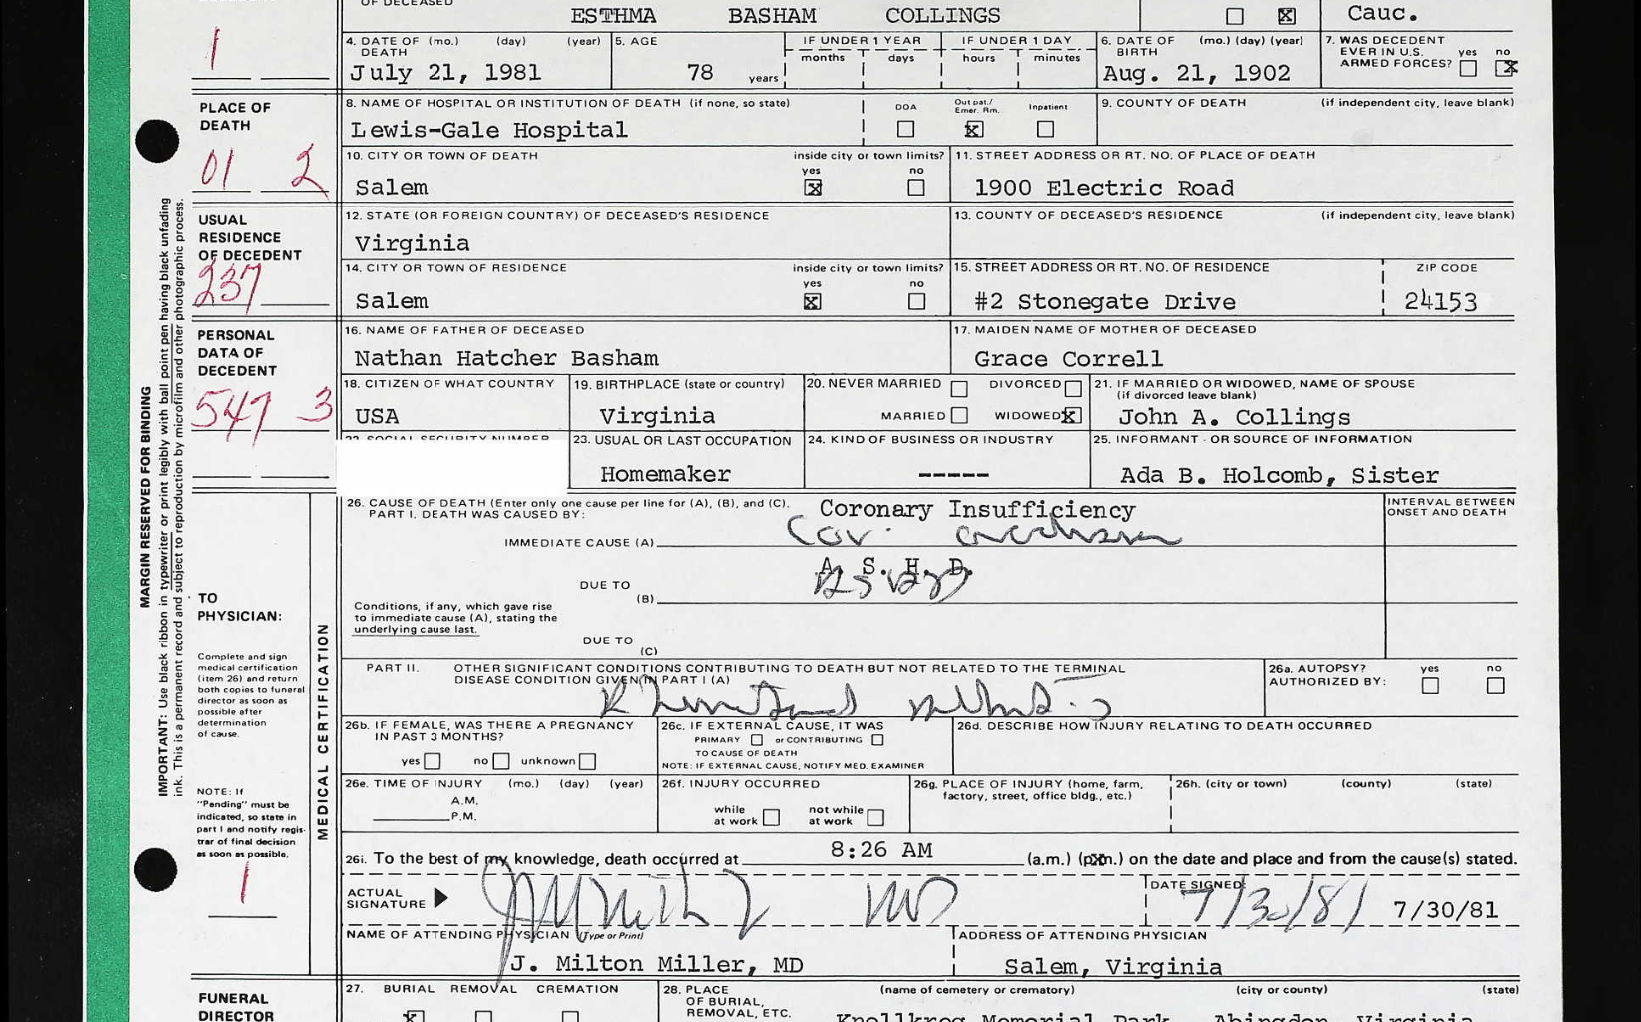 OF DECEASED
ESTHMA BASHAM COLLINGS Cauc.
1
4. DATE OF DEATH (mo.) (day) (year)
July 21, 1981
5. AGE
78 years
IF UNDER 1 YEAR
months days
IF UNDER 1 DAY
hours minutes
6. DATE OF BIRTH (mo.) (day) (year)
Aug. 21, 1902
7. WAS DECEDENT EVER IN U.S. ARMED FORCES? yes no
PLACE OF DEATH
01 2
8. NAME OF HOSPITAL OR INSTITUTION OF DEATH (if none, so state)
Lewis-Gale Hospital
DOA Out pat./ Emer. Rm. Inpatient
9. COUNTY OF DEATH (if independent city, leave blank)
10. CITY OR TOWN OF DEATH inside city or town limits? yes no
Salem
11. STREET ADDRESS OR RT. NO. OF PLACE OF DEATH
1900 Electric Road
USUAL RESIDENCE OF DECEDENT
237
12. STATE (OR FOREIGN COUNTRY) OF DECEASED'S RESIDENCE
Virginia
13. COUNTY OF DECEASED'S RESIDENCE (if independent city, leave blank)
14. CITY OR TOWN OF RESIDENCE inside city or town limits? yes no
Salem
15. STREET ADDRESS OR RT. NO. OF RESIDENCE ZIP CODE
#2 Stonegate Drive 24153
PERSONAL DATA OF DECEDENT
547 3
16. NAME OF FATHER OF DECEASED
Nathan Hatcher Basham
17. MAIDEN NAME OF MOTHER OF DECEASED
Grace Correll
18. CITIZEN OF WHAT COUNTRY
USA
19. BIRTHPLACE (state or country)
Virginia
20. NEVER MARRIED DIVORCED
MARRIED WIDOWED
21. IF MARRIED OR WIDOWED, NAME OF SPOUSE
(if divorced leave blank)
John A. Collings
22. SOCIAL SECURITY NUMBER
23. USUAL OR LAST OCCUPATION
Homemaker
24. KIND OF BUSINESS OR INDUSTRY
-----
25. INFORMANT - OR SOURCE OF INFORMATION
Ada B. Holcomb, Sister
MARGIN RESERVED FOR BINDING
IMPORTANT: Use black ribbon in typewriter or print legibly with ball point pen having black unfading
ink. This is a permanent record and subject to reproduction by microfilm and other photographic process.
TO PHYSICIAN:
Complete and sign
medical certification
(item 26) and return
both copies to funeral
director as soon as
possible after
determination
of cause.
NOTE: If
"Pending" must be
indicated, so state in
part I and notify regis-
trar of final decision
as soon as possible.
1
MEDICAL CERTIFICATION
26. CAUSE OF DEATH (Enter only one cause per line for (A), (B), and (C).
PART I. DEATH WAS CAUSED BY:
INTERVAL BETWEEN
ONSET AND DEATH
Coronary Insufficiency
IMMEDIATE CAUSE (A)
A. S. H. D.
DUE TO (B)
Conditions, if any, which gave rise
to immediate cause (A), stating the
underlying cause last.
DUE TO (C)
PART II. OTHER SIGNIFICANT CONDITIONS CONTRIBUTING TO DEATH BUT NOT RELATED TO THE TERMINAL
DISEASE CONDITION GIVEN IN PART I (A)
26a. AUTOPSY? yes no
AUTHORIZED BY:
26b. IF FEMALE, WAS THERE A PREGNANCY
IN PAST 3 MONTHS?
yes no unknown
26c. IF EXTERNAL CAUSE, IT WAS
PRIMARY or CONTRIBUTING
TO CAUSE OF DEATH
NOTE: IF EXTERNAL CAUSE, NOTIFY MED. EXAMINER
26d. DESCRIBE HOW INJURY RELATING TO DEATH OCCURRED
26e. TIME OF INJURY (mo.) (day) (year)
A.M.
P.M.
26f. INJURY OCCURRED
while at work not while at work
26g. PLACE OF INJURY (home, farm,
factory, street, office bldg., etc.)
26h. (city or town) (county) (state)
26i. To the best of my knowledge, death occurred at 8:26 AM (a.m.) (p.m.) on the date and place and from the cause(s) stated.
ACTUAL SIGNATURE
MD
DATE SIGNED:
7/30/81 7/30/81
NAME OF ATTENDING PHYSICIAN (Type or Print)
J. Milton Miller, MD
ADDRESS OF ATTENDING PHYSICIAN
Salem, Virginia
FUNERAL DIRECTOR
27. BURIAL REMOVAL CREMATION
28. PLACE OF BURIAL, REMOVAL, ETC.
(name of cemetery or crematory) (city or county) (state)
Knollkreg Memorial Park Abingdon Virginia